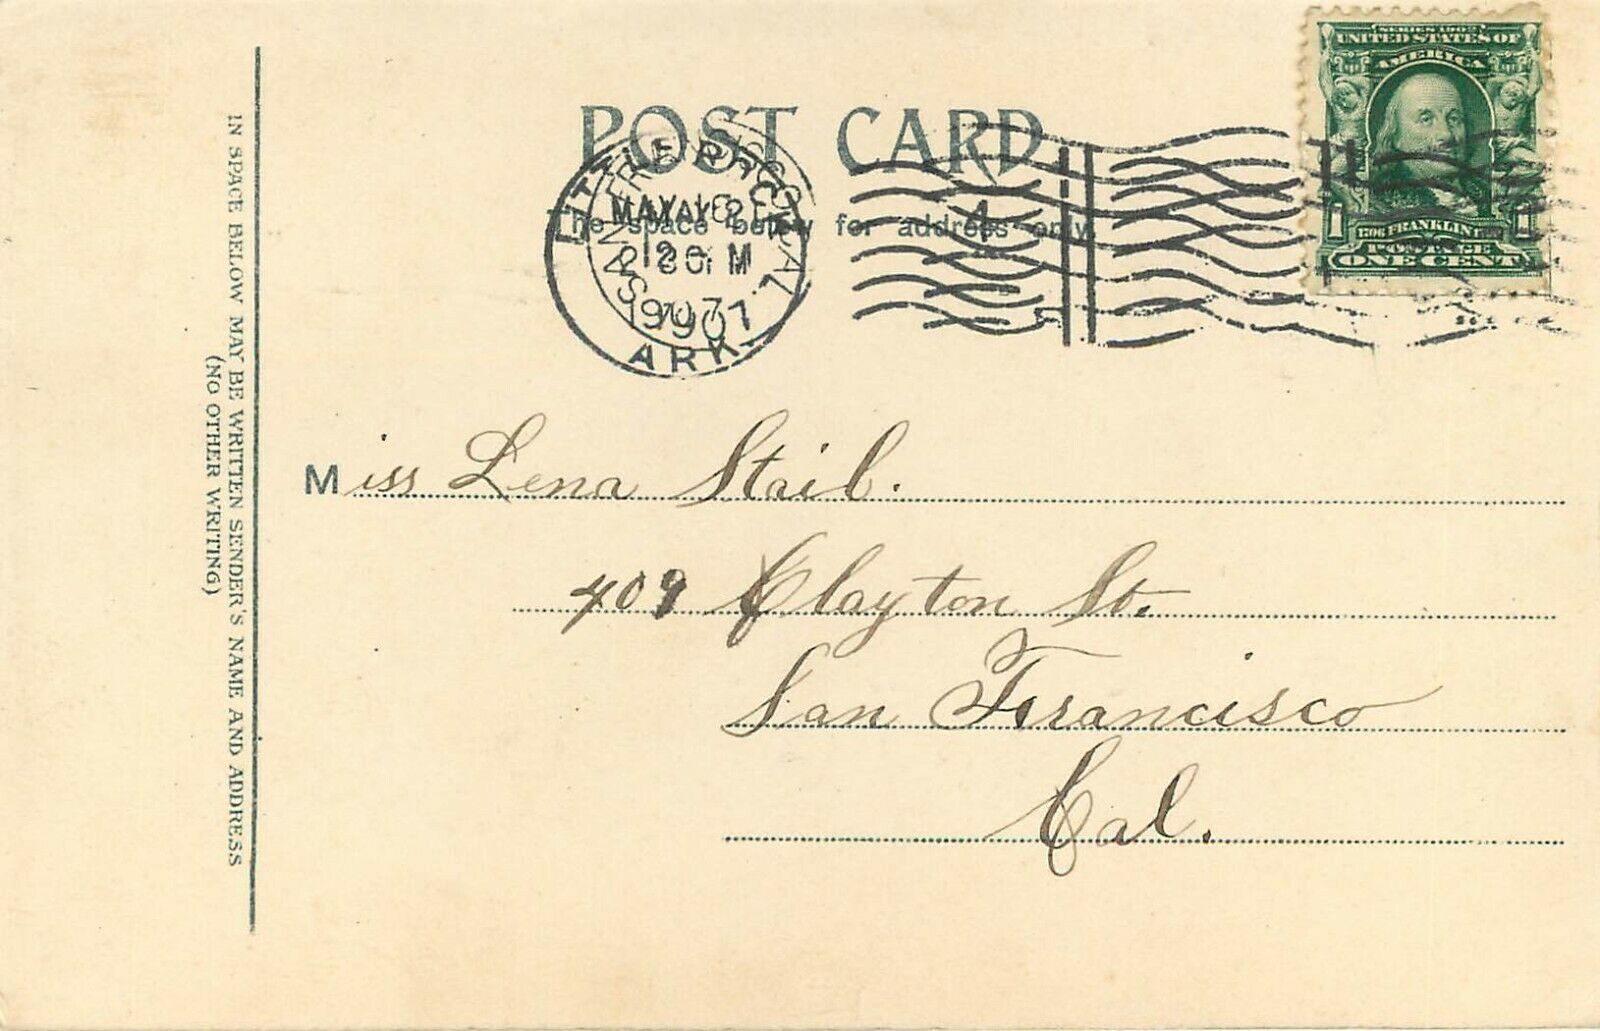 SERIES 1902
UNITED STATES OF
AMERICA
1706 FRANKLIN
POSTAGE
ONE CENT
1
POST CARD
The space below for address only.
LITTLE ROCK
ARK.
SAN FRANCISCO, CAL.
MAY
1907
1907
4
5
Miss Lena Staib.
409 Clayton St.
San Francisco
Cal.
IN SPACE BELOW MAY BE WRITTEN SENDER'S NAME AND ADDRESS
(NO OTHER WRITING)